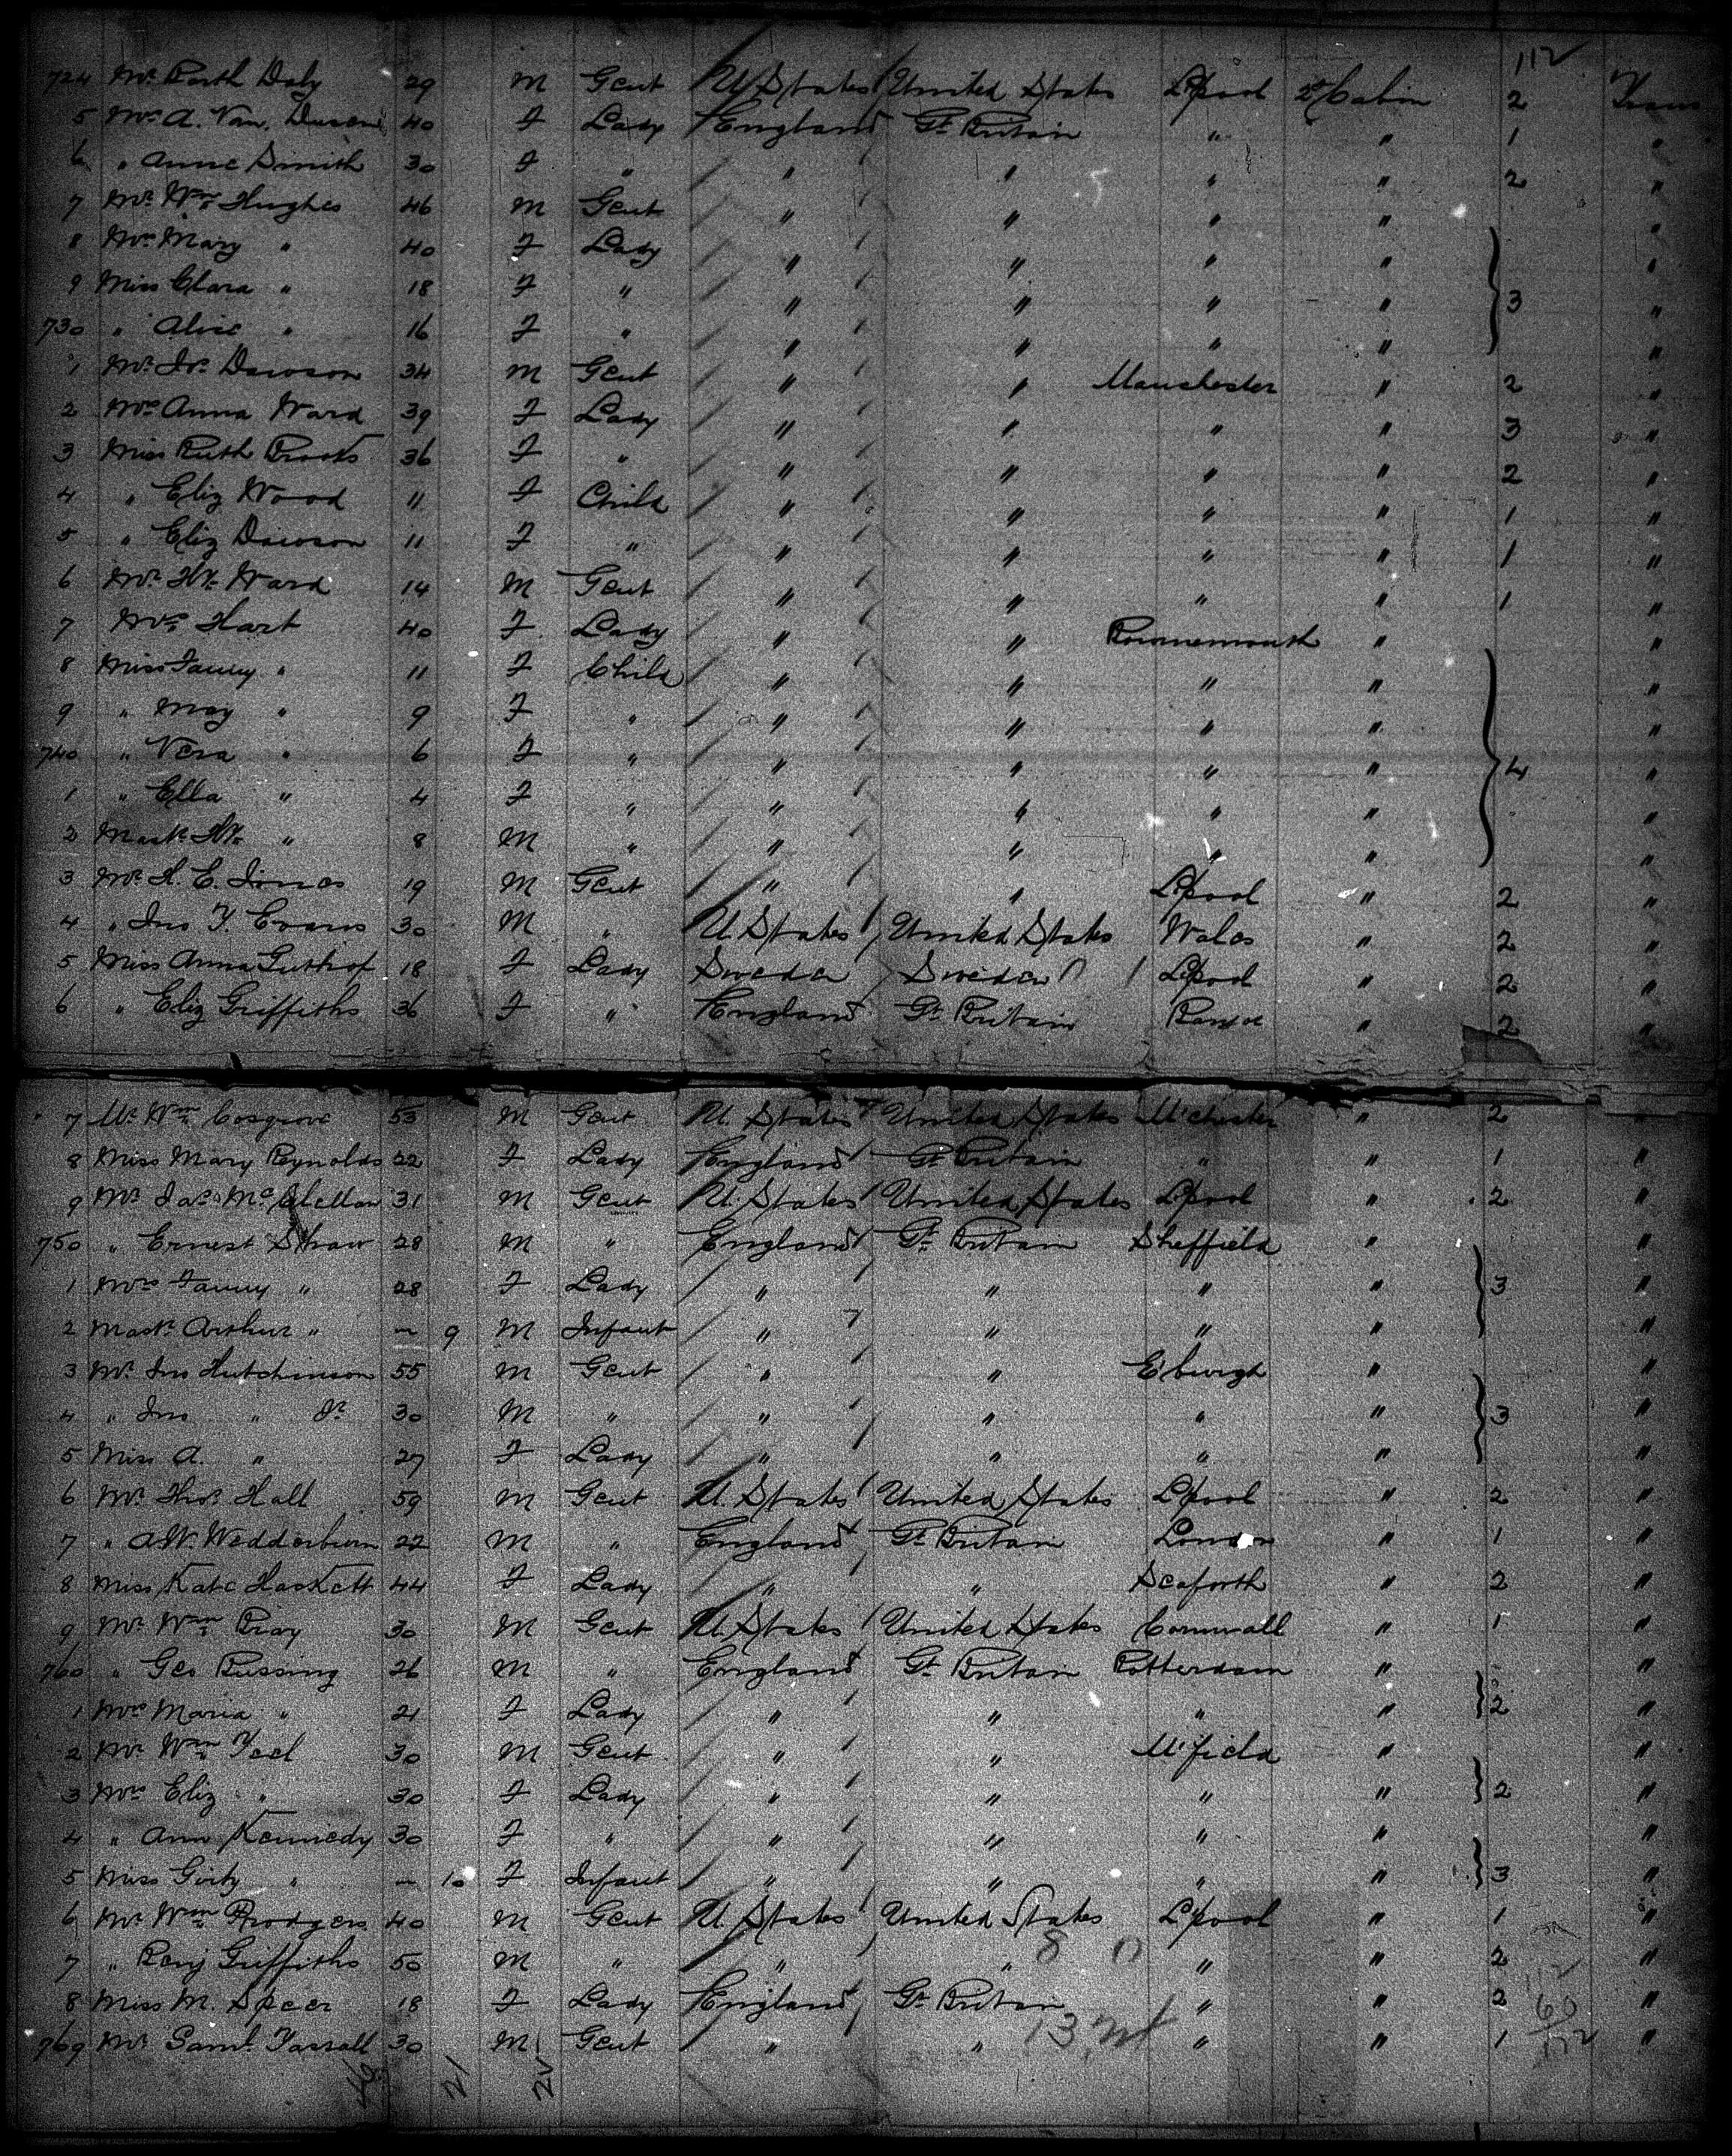 112
724 Mr. Barth Daly 29 M Gent U. States United States L'pool 2d Cabin 2 Trans
5 Mrs. A. Van. Dusen 40 F Lady England Gt. Britain " " 1 "
6 " Anne Smith 30 F " " " " " 2 "
7 Mr. Wm. Hughes 46 M Gent " " " " "
8 Mrs. Mary " 40 F Lady " " " " "
9 Miss Clara " 18 F " " " " " 3 "
730 " Alice " 16 F " " " " " "
1 Mr. Jno. Dawson 34 M Gent " " Manchester " 2 "
2 Mrs. Anna Ward 39 F Lady " " " " 3 "
3 Miss Ruth Brooks 36 F " " " " " 2 "
4 " Eliz Wood 11 F Child " " " " 1 "
5 " Eliz Dawson 11 F " " " " " 1 "
6 Mr. Hy. Ward 14 M Gent " " " " 1 "
7 Mrs. Hart 40 F Lady " " Bournemouth " "
8 Miss Fanny " 11 F Child " " " " "
9 " May " 9 F " " " " " "
740 " Vera " 6 F " " " " " 4 "
1 " Ella " 4 F " " " " " "
2 Mastr. Hy. " 8 M " " " " " "
3 Mr. H. E. 19 M Gent " " L'pool " 2 "
4 " Jno T. Evans 30 M " U. States United States Wales " 2 "
5 Miss Anna 18 F Lady Sweden Sweden L'pool " 2 "
6 " Eliz Griffiths 36 F " England Gt. Britain " 2 "
7 Mr. Wm. Cosgrove 53 M Gent U. States United States M'chester " 2 "
8 Miss Mary Reynolds 22 F Lady England Gt. Britain " " 1 "
9 Mr. Jas. McClellan 31 M Gent U. States United States L'pool " 2 "
750 " Ernest Shaw 28 M " England Gt. Britain Sheffield " "
1 Mrs. Fanny " 28 F Lady " " " " 3 "
2 Mastr. Arthur " – 9 M Infant " " " " "
3 Mr. Jno Hutchinson 55 M Gent " " E'burgh " "
4 " Jno " Jr. 30 M " " " " " 3 "
5 Miss A. " 27 F Lady " " " " "
6 Mr. Thos. Hall 59 M Gent U. States United States L'pool " 2 "
7 " A.W. Wedderburn 22 M " England Gt. Britain London " 1 "
8 Miss Kate Haskett 44 F Lady " " Seaforth " 2 "
9 Mr. Wm. Bray 30 M Gent U. States United States Cornwall " 1 "
760 " Geo Bussing 26 M " England Gt. Britain Rotterdam " "
1 Mrs. Maria " 21 F Lady " " " " 2 "
2 Mr. Wm. 30 M Gent " " M'field " "
3 Mrs. Eliz " 30 F Lady " " " " 2 "
4 " Ann Kennedy 30 F " " " " " "
5 Miss " – 10 F Infant " " " " 3 "
6 Mr. Wm. Rodgers 40 M Gent U. States United States L'pool " 1 "
7 " Benj Griffiths 50 M " " " " " 2 "
8 Miss M. Speer 18 F Lady England Gt. Britain " " 2 "
769 Mr. Saml. 30 M Gent " " " " 1 "